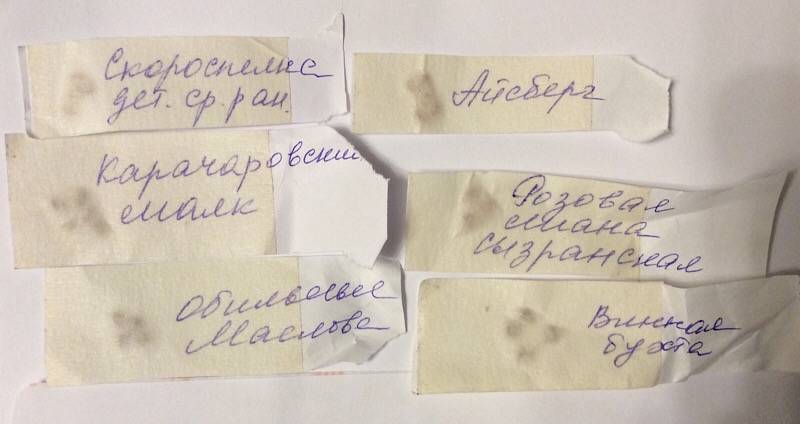 Скороспелка
дет. ср. ран.
Айсберг
Карачаровский
маяк
Розовая
лиана
сызранская
Обильные
Маслова
Винная
бухта